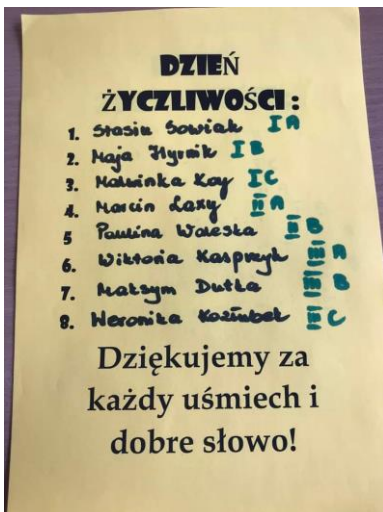 DZIEŃ
ŻYCZLIWOŚCI:
1. Stasiu Sowiak I A
2. Maja Hyrnik I B
3. Malwinka I C
4. Marcin Łaxy II A
5 Paulina Waleska II B
6. Wiktoria Kasprzyk III A
7. Maksym Dutka III B
8. Weronika III C
Dziękujemy za
każdy uśmiech i
dobre słowo!